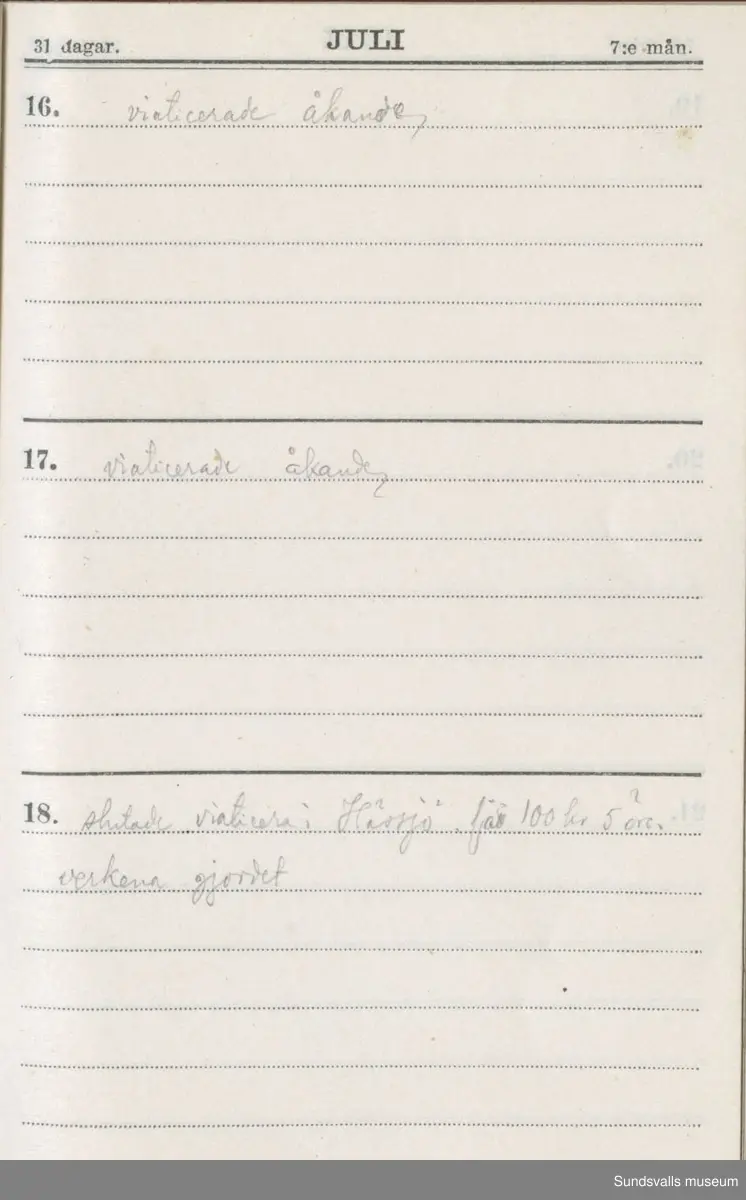 31 dagar. JULI 7:e mån.
16. viaticerade åkande
17. viaticerade åkande
18. slutade viaticera i Hässjö. får 100 kr 5 öre.
verkena gjordet
Sundsvalls museum